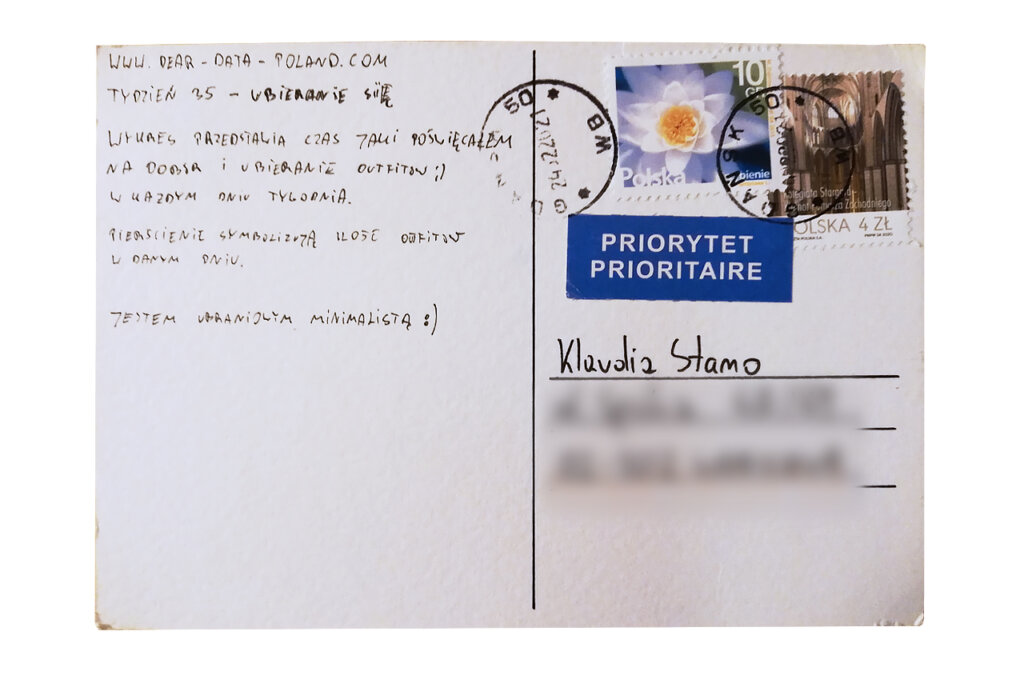 WWW.DEAR-DATA-POLAND.COM
TYDZIEŃ 35 - UBIERANIE SIĘ
WYKRES PRZEDSTAWIA CZAS JAKI POŚWIĘCAŁEM
NA DOBÓR I UBIERANIE OUTFITÓW ;)
W KAŻDYM DNIU TYGODNIA.
PIERŚCIENIE SYMBOLIZUJĄ ILOŚĆ OUTFITÓW
W DANYM DNIU.
JESTEM UBRANIOWYM MINIMALISTĄ :)
50
WB
10
GR
Polska
GDAŃSK 50
WB
POLSKA 4 ZŁ
PRIORYTET
PRIORITAIRE
Klaudia Stamo